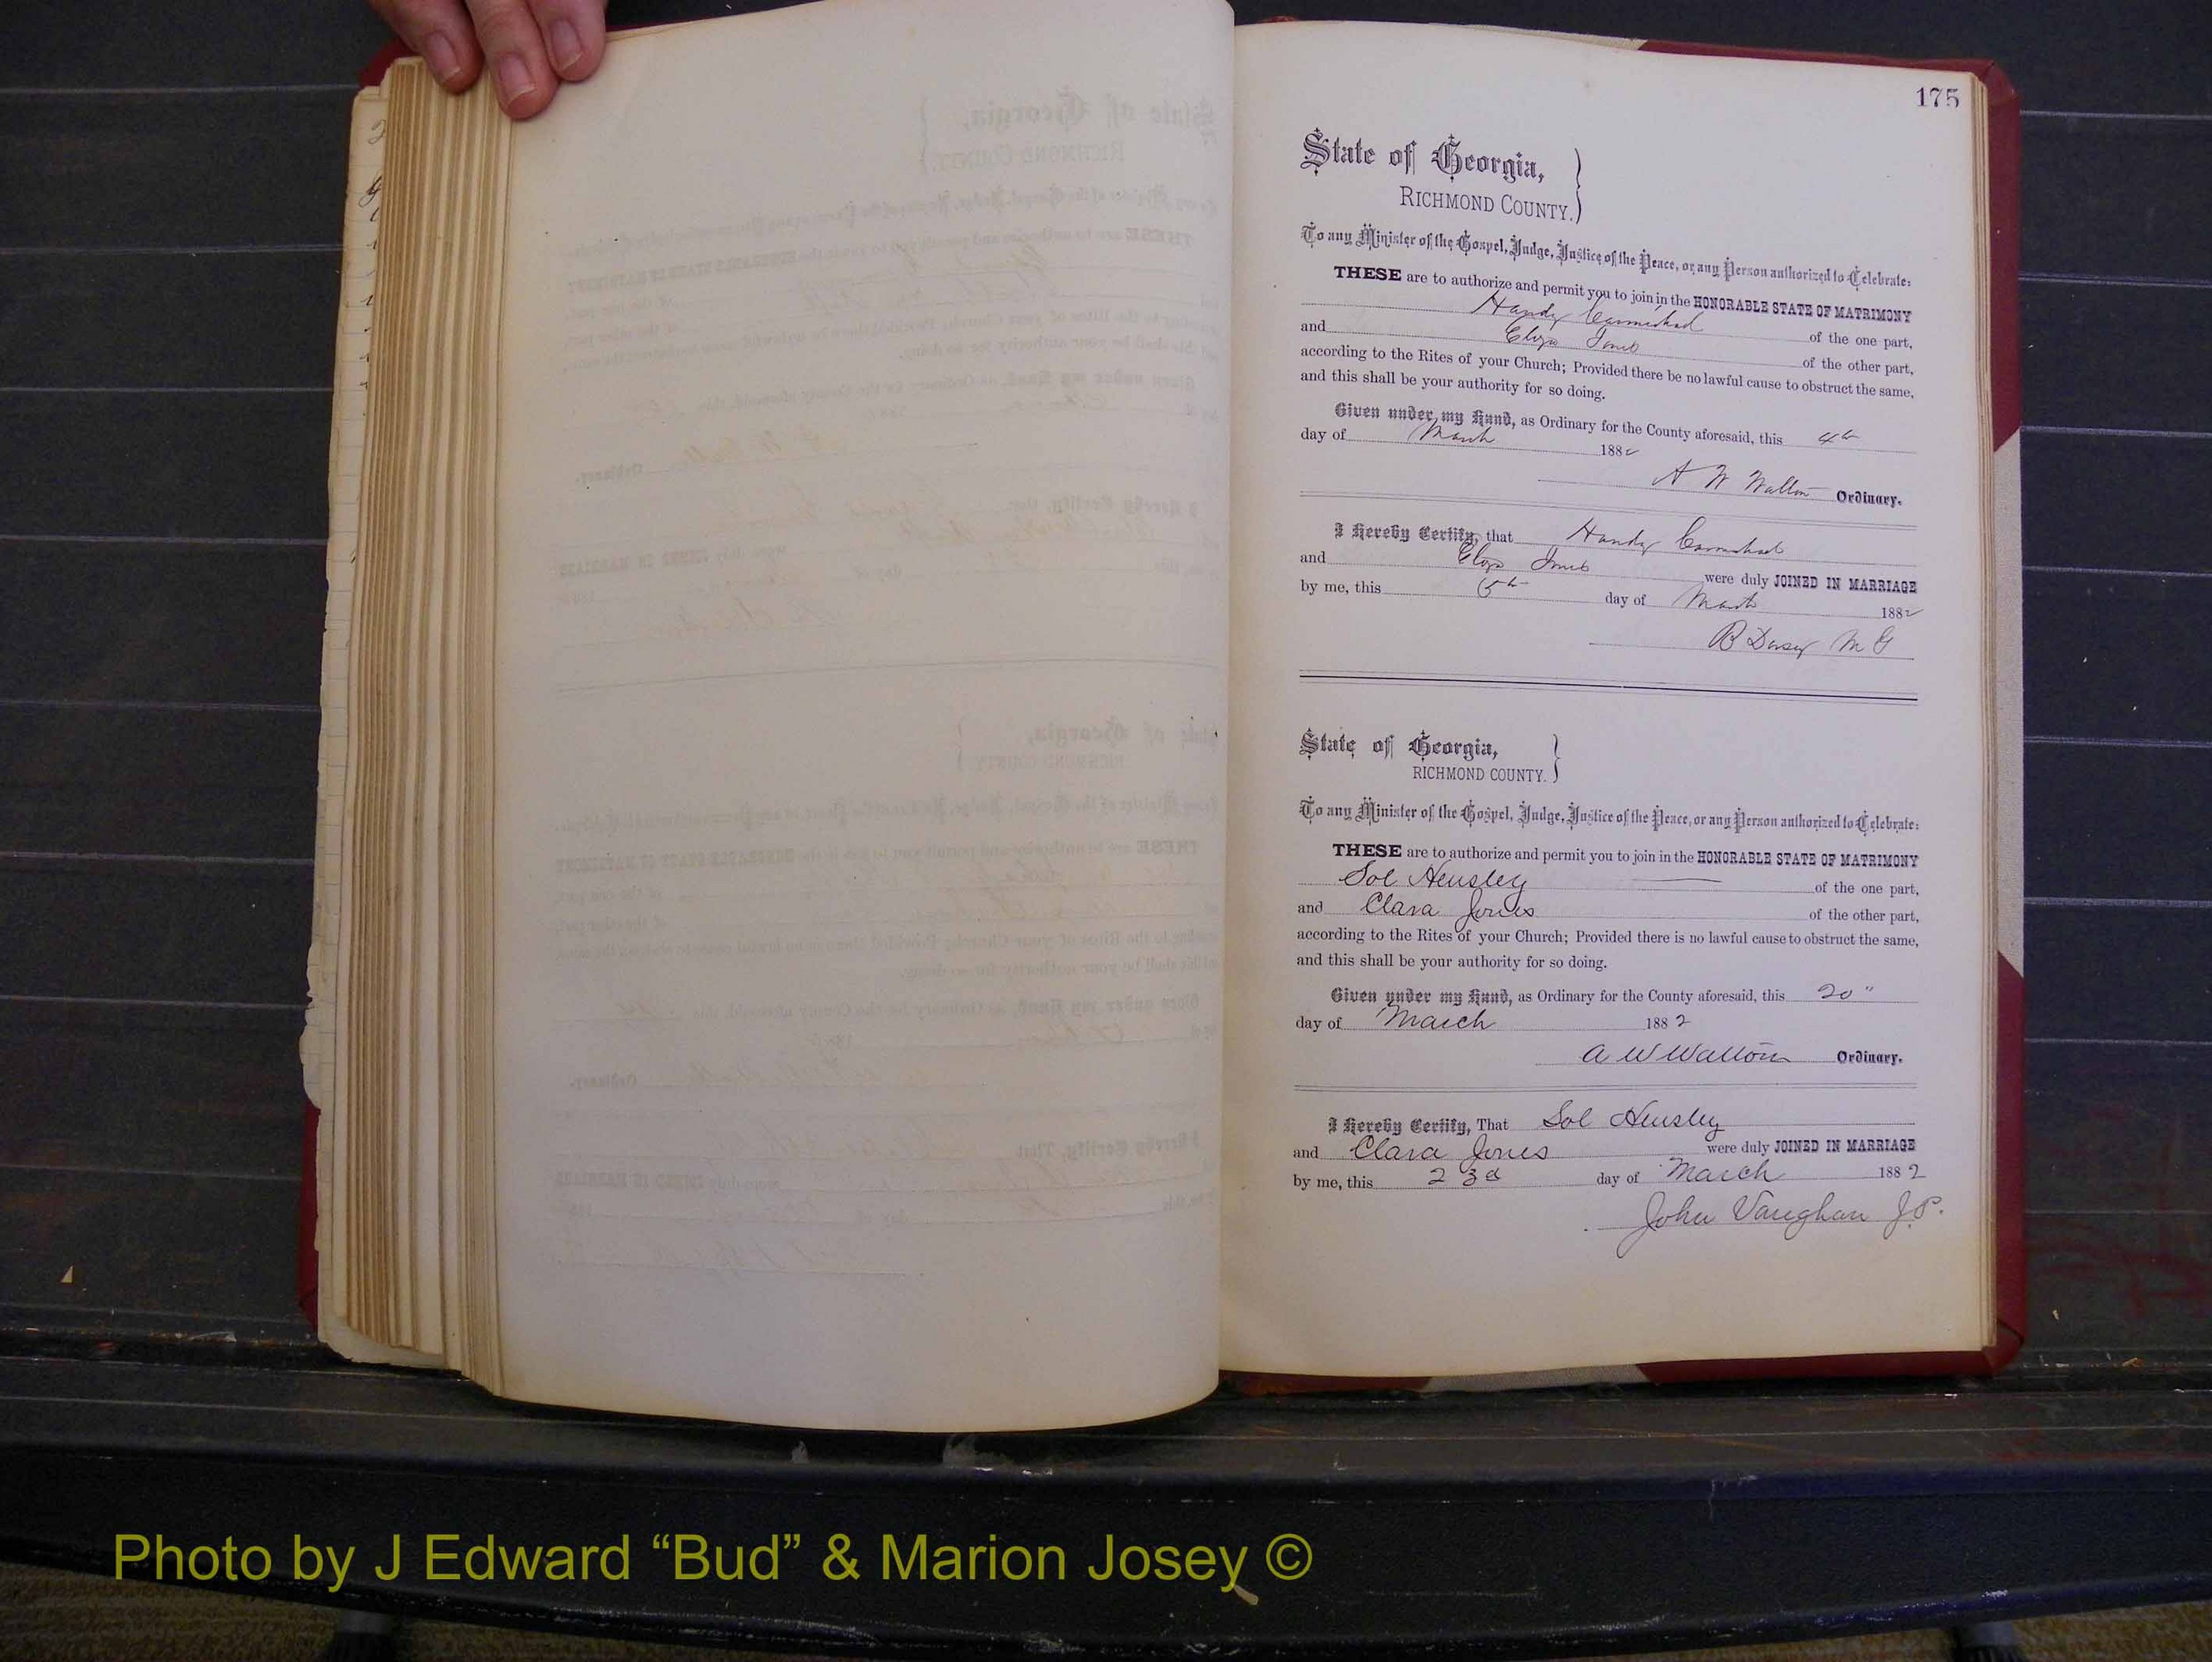 175
State of Georgia,
RICHMOND COUNTY.
To any Minister of the Gospel, Judge, Justice of the Peace, or any Person authorized to Celebrate:
THESE are to authorize and permit you to join in the HONORABLE STATE OF MATRIMONY
Handy of the one part,
and of the other part,
according to the Rites of your Church; Provided there be no lawful cause to obstruct the same,
and this shall be your authority for so doing.
Given under my Hand, as Ordinary for the County aforesaid, this 4th
day of March 1882
A W Walton Ordinary.
I Hereby Certify, that Handy
and were duly JOINED IN MARRIAGE
by me, this 5th day of March 1882
B Dorsey M G
State of Georgia,
RICHMOND COUNTY.
To any Minister of the Gospel, Judge, Justice of the Peace, or any Person authorized to Celebrate:
THESE are to authorize and permit you to join in the HONORABLE STATE OF MATRIMONY
Sol Hensley of the one part,
and Clara Jones of the other part,
according to the Rites of your Church; Provided there is no lawful cause to obstruct the same,
and this shall be your authority for so doing.
Given under my Hand, as Ordinary for the County aforesaid, this 20"
day of March 1882
A W Walton Ordinary.
I Hereby Certify, That Sol Hensley
and Clara Jones were duly JOINED IN MARRIAGE
by me, this 23d day of March 1882
John Vaughan J.P.
Photo by J Edward “Bud” & Marion Josey ©